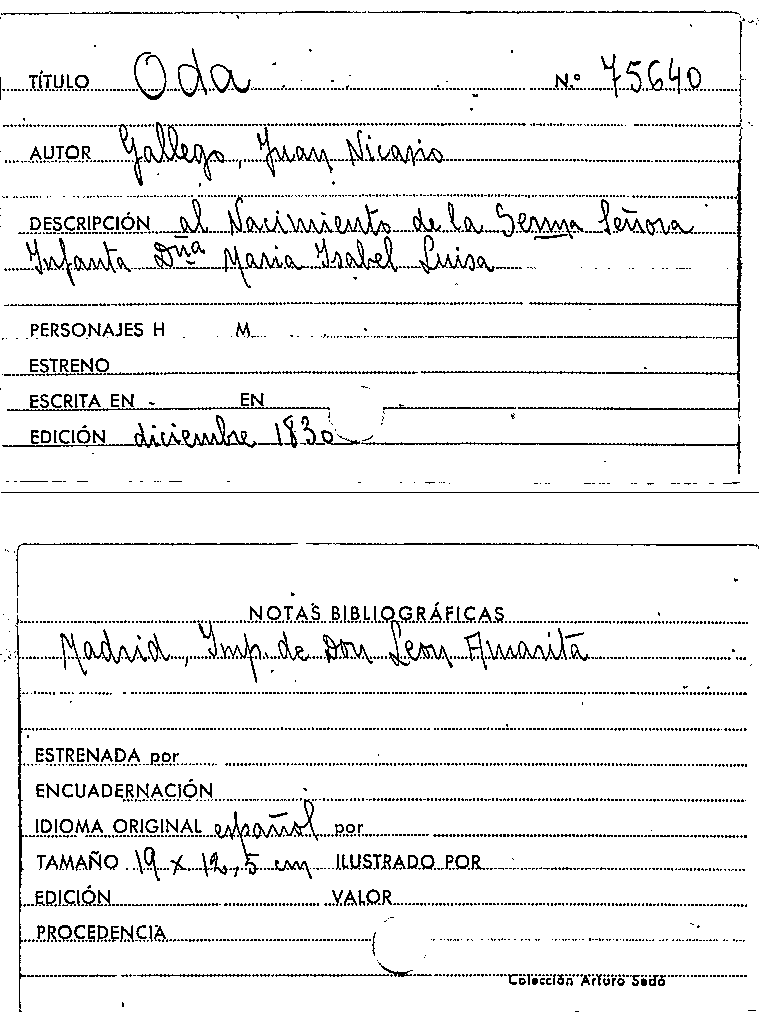 TÍTULO Oda N.º 75640
AUTOR Gallego, Juan Nicasio
DESCRIPCIÓN al Nacimiento de la Serma Señora
Infanta Dña Maria Isabel Luisa
PERSONAJES H M
ESTRENO
ESCRITA EN EN
EDICIÓN diciembre 1830
NOTAS BIBLIOGRÁFICAS
Madrid, Imp. de Don Leon Amarita
ESTRENADA por
ENCUADERNACIÓN
IDIOMA ORIGINAL español por
TAMAÑO 19 x 12,5 cm ILUSTRADO POR
EDICIÓN VALOR
PROCEDENCIA
Colección Arturo Sedó